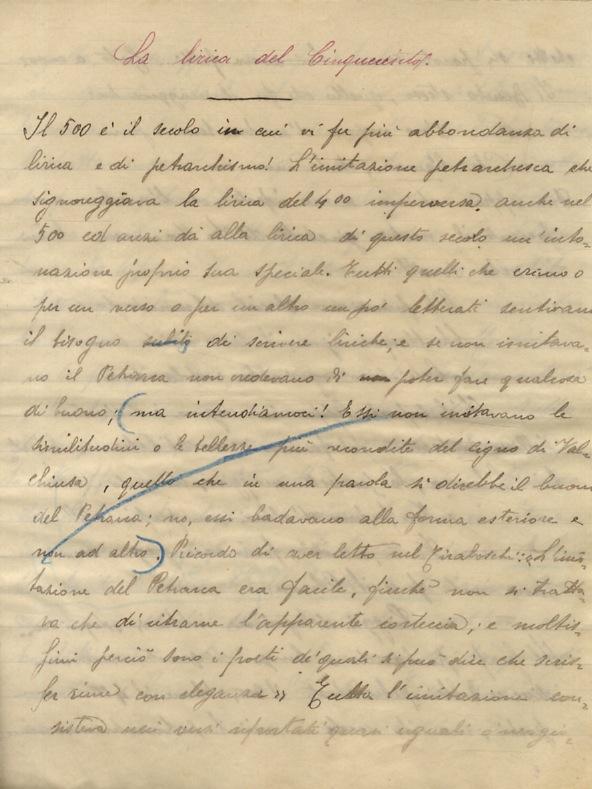 La lirica del Cinquecento.
Il 500 è il secolo in cui vi fu più abbondanza di
lirica e di petrarchismo! L'imitazione petrarchesca che
signoreggiava la lirica del 400 imperversa anche nel
500 ed anzi dà alla lirica di questo secolo un'into=
nazione proprio sua speciale. Tutti quelli che erano o
per un verso o per un altro un po' letterati sentivano
il bisogno subito di scrivere liriche; e se non imitava=
no il Petrarca non credevano di non poter fare qualcosa
di buono; (ma intendiamoci! Essi non imitavano le
similitudini o le bellezze più recondite del cigno di Val=
chiusa, quello che in una parola si direbbe il buono
del Petrarca; no, essi badavano alla forma esteriore e
non ad altro.) Ricordo di aver letto nel Tiraboschi: «L'imi=
tazione del Petrarca era facile, finché non si tratta=
va che di ritrarne l'apparente corteccia; e moltis=
simi perciò sono i poeti de' quali si può dire che scris=
ser rime con eleganza» Tutta l'imitazione con=
sisteva nei versi riportati quasi uguali o